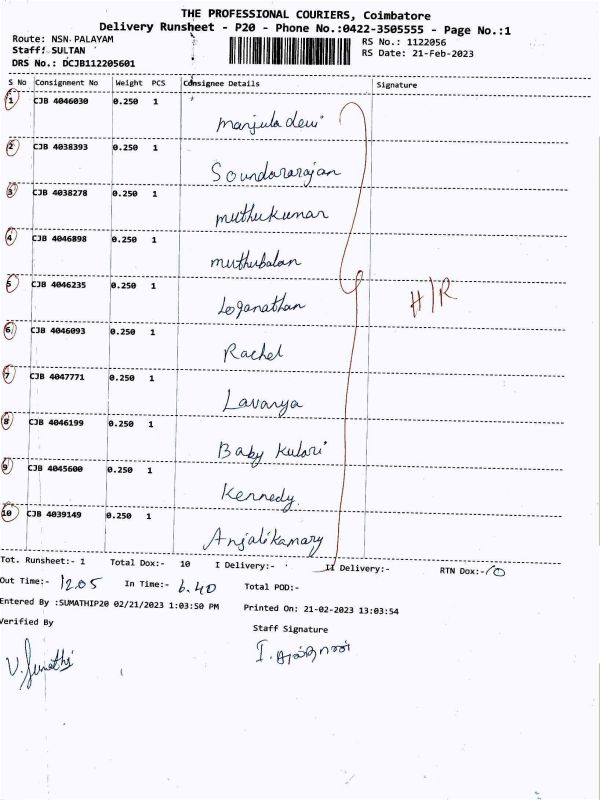 THE PROFESSIONAL COURIERS, Coimbatore
Delivery Runsheet - P20 - Phone No.:0422-3505555 - Page No.:1
Route: NSN PALAYAM RS No.: 1122056
Staff: SULTAN RS Date: 21-Feb-2023
DRS No.: DCJB112205601
S No Consignment No Weight PCS Consignee Details Signature
1 CJB 4046030 0.250 1
Manjula devi
2 CJB 4038393 0.250 1
Soundararajan
3 CJB 4038278 0.250 1
muthukumar
4 CJB 4046898 0.250 1
muthubalan
5 CJB 4046235 0.250 1 H/R
Loganathan
6 CJB 4046093 0.250 1
Rachel
7 CJB 4047771 0.250 1
Lavanya
8 CJB 4046199 0.250 1
Baby Kulari
9 CJB 4045600 0.250 1
Kennedy.
10 CJB 4039149 0.250 1
Anjalikamary
Tot. Runsheet:- 1 Total Dox:- 10 I Delivery:- II Delivery:- RTN Dox:-10
Out Time:- 12.05 In Time:- 6.40 Total POD:-
Entered By :SUMATHIP20 02/21/2023 1:03:50 PM Printed On: 21-02-2023 13:03:54
Verified By Staff Signature
V. Sumathi